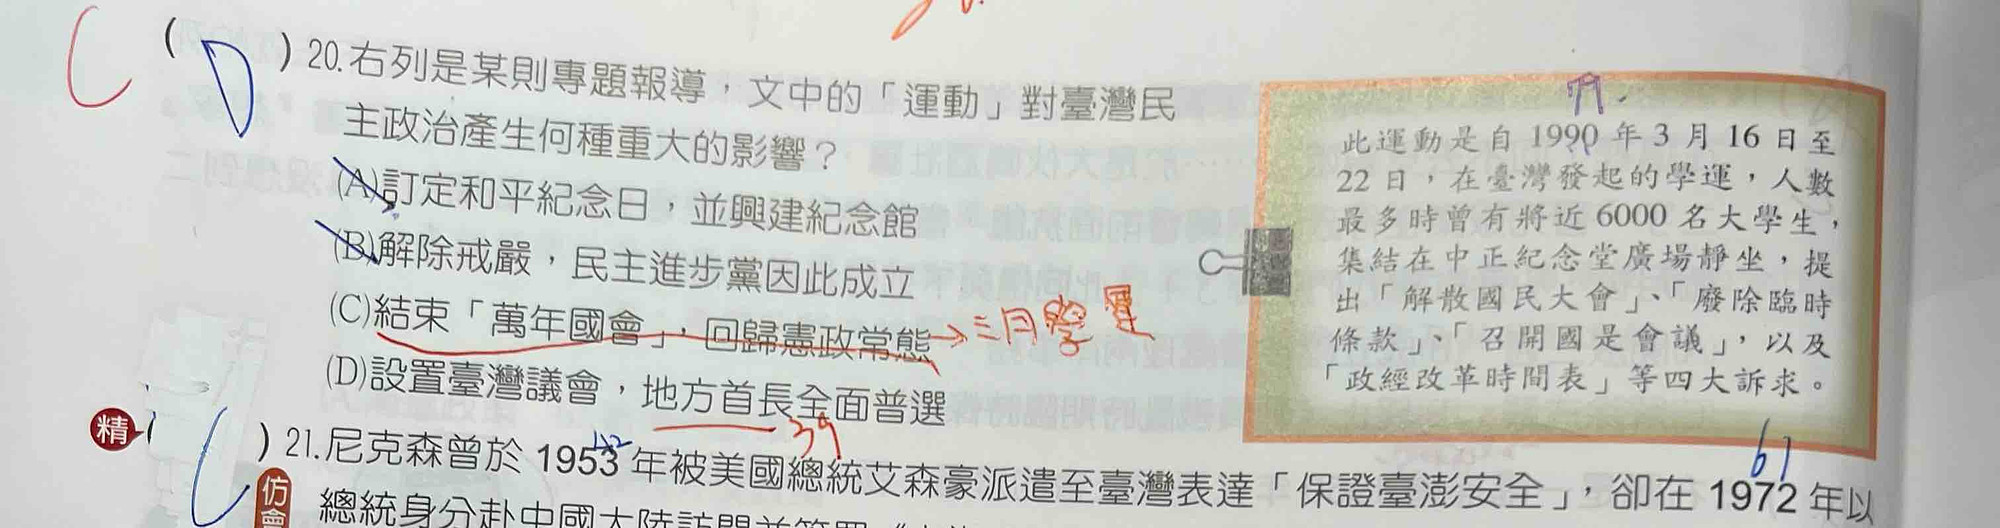 C
( D ) 20.右列是某則專題報導，文中的「運動」對臺灣民
主政治產生何種重大的影響？
(A)訂定和平紀念日，並興建紀念館
(B)解除戒嚴，民主進步黨因此成立
(C)結束「萬年國會」，回歸憲政常態→三月學運
(D)設置臺灣議會，地方首長全面普選
39
79.
此運動是自 1990 年 3 月 16 日至
22 日，在臺灣發起的學運，人數
最多時曾有將近 6000 名大學生，
集結在中正紀念堂廣場靜坐，提
出「解散國民大會」、「廢除臨時
條款」、「召開國是會議」，以及
「政經改革時間表」等四大訴求。
精
( C ) 21.尼克森曾於 1953 年被美國總統艾森豪派遣至臺灣表達「保證臺澎安全」，卻在 1972 年以
42
61
仿會
總統身分赴中國大陸訪問並簽署